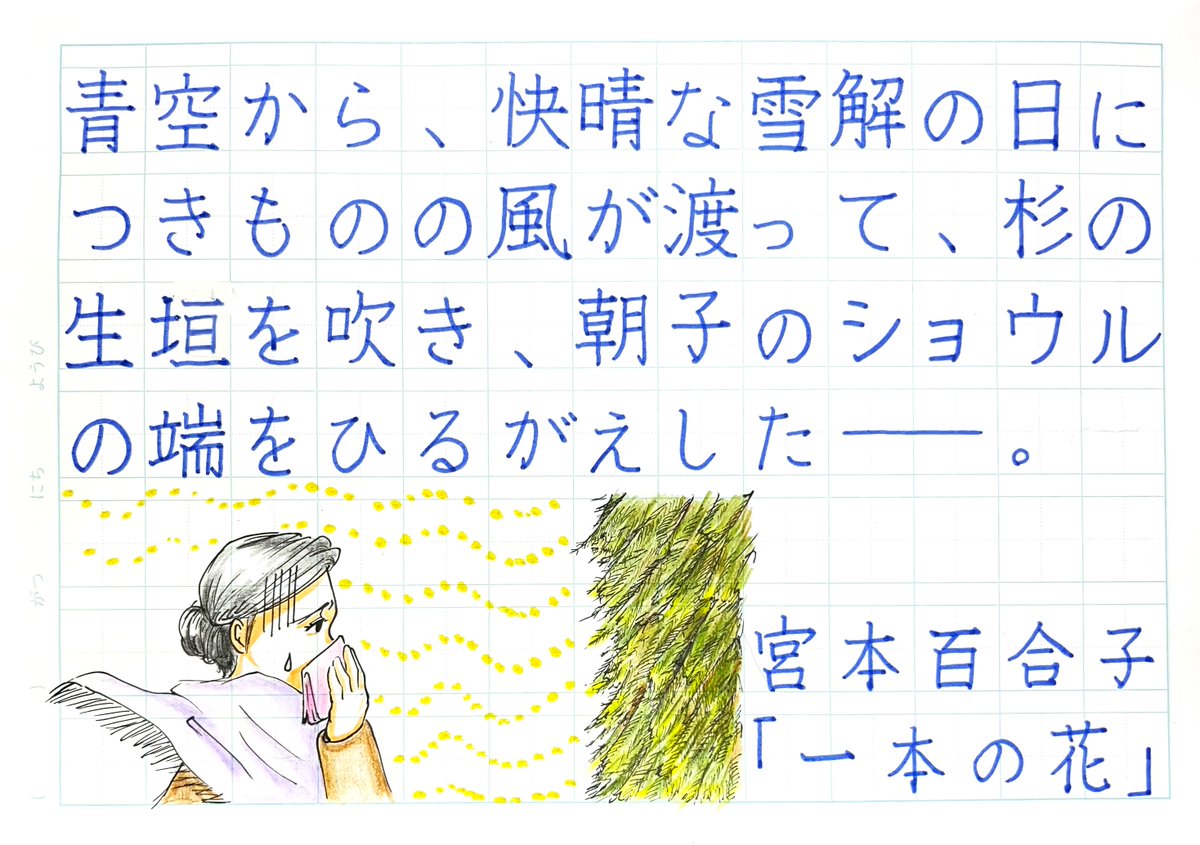 青空から、快晴な雪解の日に
つきものの風が渡って、杉の
生垣を吹き、朝子のショウル
の端をひるがえした――。
宮本百合子
「一本の花」
がつ にち ようび